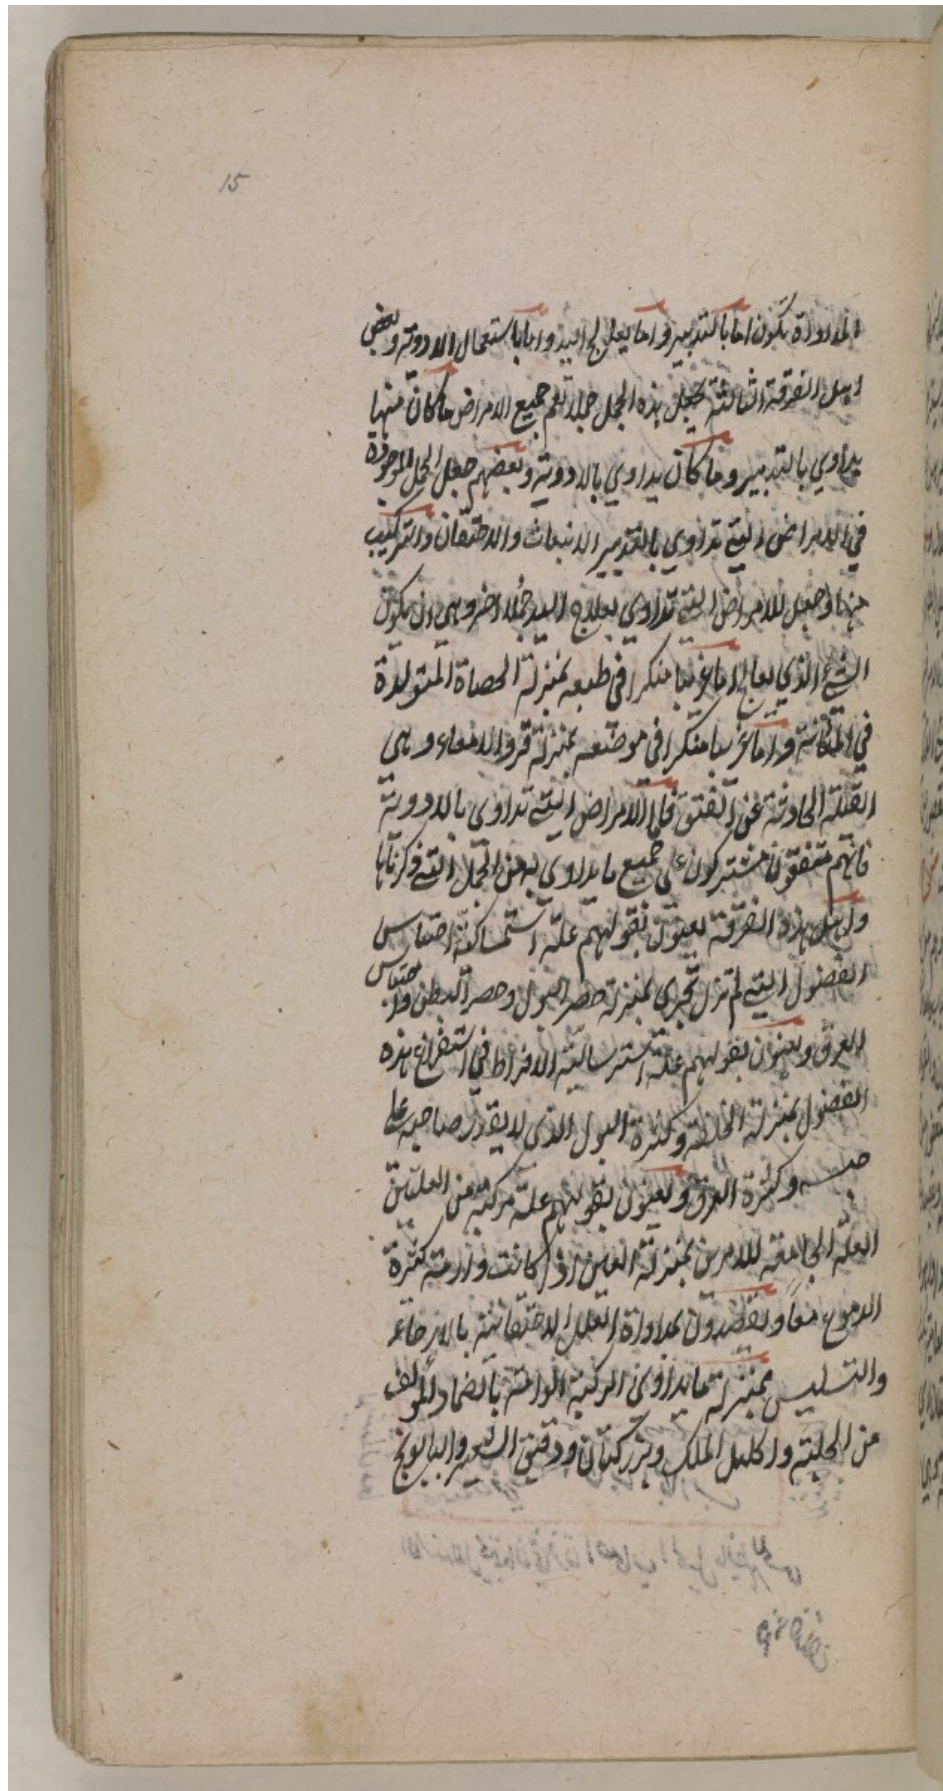 15
المداواة تكون اما بالتدبير واما بعلاج اليد واما باستعمال الادوية وبعض
اهل الفرقة الثالثة يجعل هذه الجمل جملا تعم جميع الامراض ما كان منها
يداوي بالتدبير وما كان يداوي بالادوية وبعضهم جعل الجمل الموجودة
في الامراض التي تداوي بالتدبير الانبعاث والاحتقان والتركيب
منهما وجعل للامراض التي تداوي بعلاج اليد جملا اخر وهي ان يكون
الشئ الذي يعالج اما غريبا منكرا في طبعه بمنزلة الحصاة المتولدة
في المثانة واما غريبا منكرا في موضعه بمنزلة قرو الامعاء وهى
القيلة الحادثة عن الفتق فاما الامراض التي تداوى بالادوية
فانهم متفقون مشتركون على جميع ما يداوي به من الجمل التي ذكرناها
واهل هذه الفرقة يعنون بقولهم علة استمساكية احتباس
الفضول التي لم تزل تجرى بمنزلة حصر البول وحصر البطن واحتباس
العرق ويعنون بقولهم علة استرسالية الافراط في استفراغ هذه
الفضول بمنزلة الخلفة وكثرة البول الذى لا يقدر صاحبه على
حبسه وكثرة العرق ويعنون بقولهم علة مركبة من العلتين
العلة الجامعة للامرين بمنزلة العين اذا كانت وارمة كثيرة
الدموع معا ويقصدون لمداواة العلل الاحتقانية بالارخاء
والتسليس بمنزلة ما يداوى الركبة الوارمة بالضماد المؤلف
من الحلبة واكليل الملك وبزر كتان ودقيق الشعير والبابونج